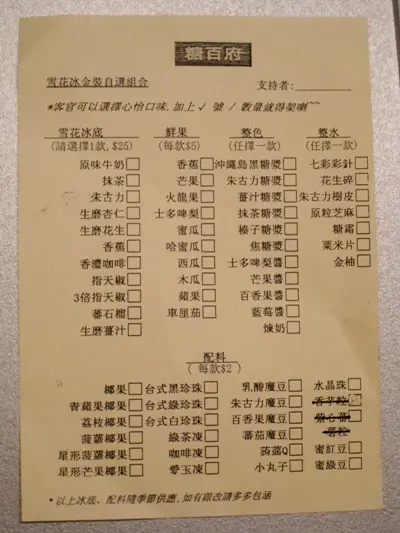 糖百府
雪花冰金裝自選組合 支持者:
*客官可以選擇心怡口味,加上✓ 號 / 數量就得架喇~~
雪花冰底 鮮果 整色 整水
(請選擇1款, $25) (每款$5) (任擇一款) (任擇一款)
原味牛奶□ 香蕉□ 沖繩島黑糖漿□ 七彩彩針□
抹茶□ 芒果□ 朱古力糖漿□ 花生碎□
朱古力□ 火龍果□ 薑汁糖漿□ 朱古力樹皮□
生磨杏仁□ 士多啤梨□ 抹茶糖漿□ 原粒芝麻□
生磨花生□ 蜜瓜□ 榛子糖漿□ 糖霜□
香蕉□ 哈蜜瓜□ 焦糖漿□ 粟米片□
香濃咖啡□ 西瓜□ 士多啤梨醬□ 金柚□
指天椒□ 木瓜□ 芒果醬□
3倍指天椒□ 蘋果□ 百香果醬□
蕃石榴□ 車厘茄□ 藍莓醬□
生磨薑汁□ 煉奶□
配料
( 每款$2 )
椰果□ 台式黑珍珠□ 乳酸魔豆□ 水晶珠□
青蘋果椰果□ 台式綠珍珠□ 朱古力魔豆□ 香芋粒□
荔枝椰果□ 台式白珍珠□ 百香果魔豆□ 紫心蕃
菠蘿椰果□ 綠茶凍□ 蕃茄魔豆□ 薯粒
星形菠蘿椰果□ 咖啡凍□ 蒟蒻Q□ 蜜紅豆□
星形芒果椰果□ 愛玉凍□ 小丸子□ 蜜綠豆□
*以上冰底、配料隨季節供應, 如有跟改請多多包涵